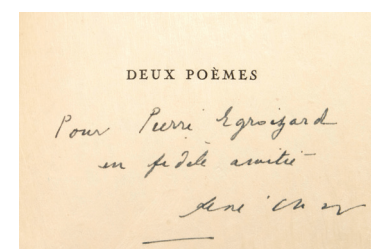 DEUX POÈMES
Pour Pierre Egroizard
en fidèle amitié
René Char